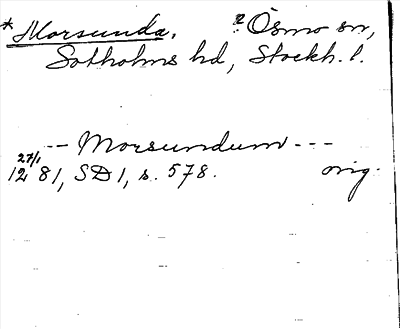 * Morsunda. ? Ösmo sn,
Sotholms hd, Stockh. l.
--- Morsundum ---
27/1
1281, SD 1, s. 578. orig.